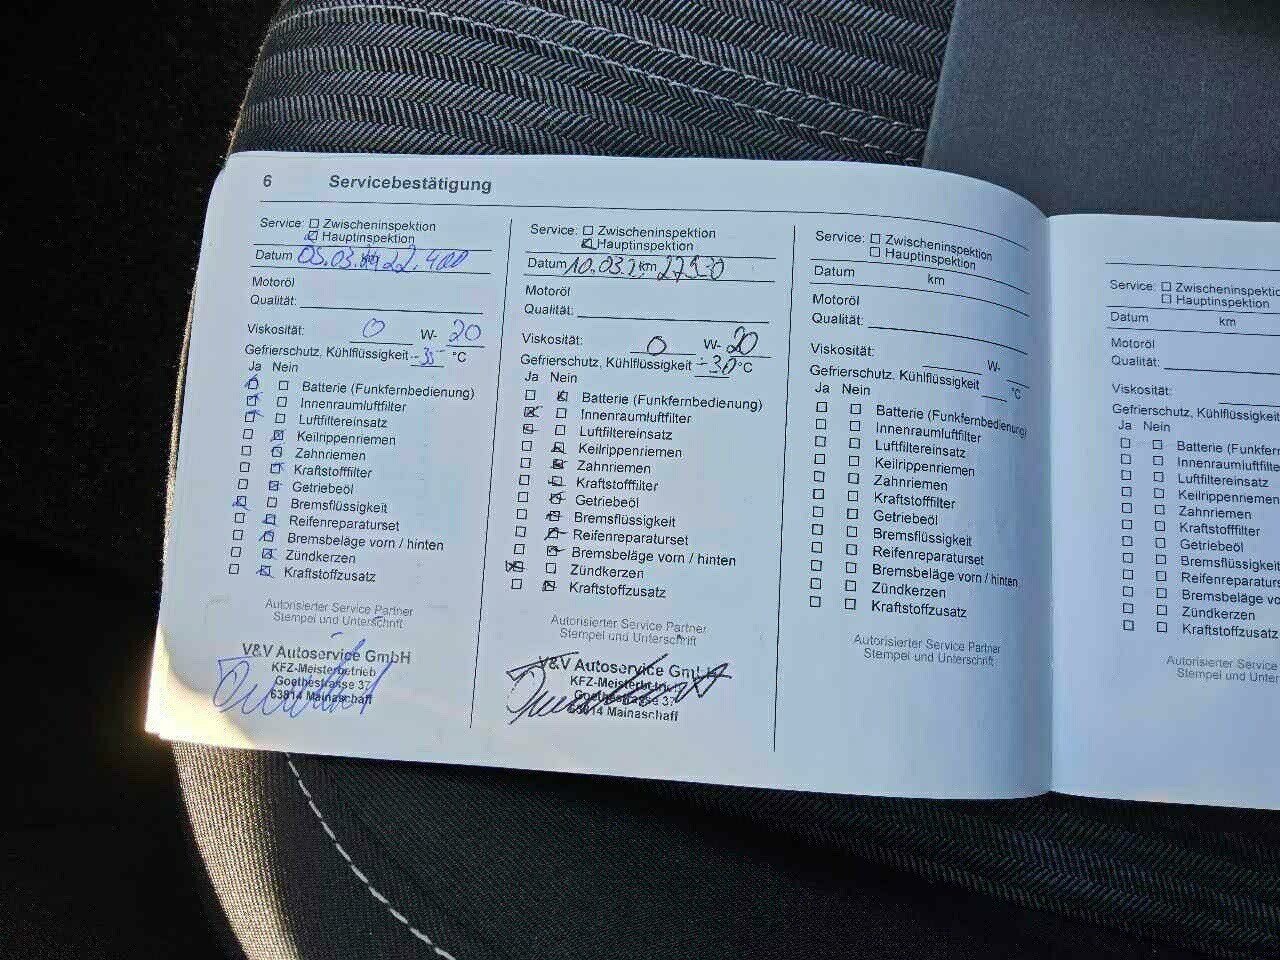 6 Servicebestätigung
Service: Zwischeninspektion
Hauptinspektion
Datum 05.03. km 22.400
Motoröl
Qualität:
Viskosität: 0 W- 20
Gefrierschutz, Kühlflüssigkeit -35 °C
Ja Nein
Batterie (Funkfernbedienung)
Innenraumluftfilter
Luftfiltereinsatz
Keilrippenriemen
Zahnriemen
Kraftstofffilter
Getriebeöl
Bremsflüssigkeit
Reifenreparaturset
Bremsbeläge vorn / hinten
Zündkerzen
Kraftstoffzusatz
Autorisierter Service Partner
Stempel und Unterschrift
V&V Autoservice GmbH
KFZ-Meisterbetrieb
Goethestrasse 37
63814 Mainaschaff
Service: Zwischeninspektion
Hauptinspektion
Datum 10.03. km
Motoröl
Qualität:
Viskosität: 0 W- 20
Gefrierschutz, Kühlflüssigkeit -30 °C
Ja Nein
Batterie (Funkfernbedienung)
Innenraumluftfilter
Luftfiltereinsatz
Keilrippenriemen
Zahnriemen
Kraftstofffilter
Getriebeöl
Bremsflüssigkeit
Reifenreparaturset
Bremsbeläge vorn / hinten
Zündkerzen
Kraftstoffzusatz
Autorisierter Service Partner
Stempel und Unterschrift
V&V Autoservice GmbH
KFZ-Meisterbetrieb
Goethestrasse 37
63814 Mainaschaff
Service: Zwischeninspektion
Hauptinspektion
Datum km
Motoröl
Qualität:
Viskosität: W-
Gefrierschutz, Kühlflüssigkeit °C
Ja Nein
Batterie (Funkfernbedienung)
Innenraumluftfilter
Luftfiltereinsatz
Keilrippenriemen
Zahnriemen
Kraftstofffilter
Getriebeöl
Bremsflüssigkeit
Reifenreparaturset
Bremsbeläge vorn / hinten
Zündkerzen
Kraftstoffzusatz
Autorisierter Service Partner
Stempel und Unterschrift
Service: Zwischeninspektion
Hauptinspektion
Datum km
Motoröl
Qualität:
Viskosität:
Gefrierschutz, Kühlflüssigkeit
Ja Nein
Batterie (Funkfern
Innenraumluftfilte
Luftfiltereinsatz
Keilrippenriemen
Zahnriemen
Kraftstofffilter
Getriebeöl
Bremsflüssigkeit
Reifenreparaturs
Bremsbeläge vo
Zündkerzen
Kraftstoffzusatz
Autorisierter Service
Stempel und Unters